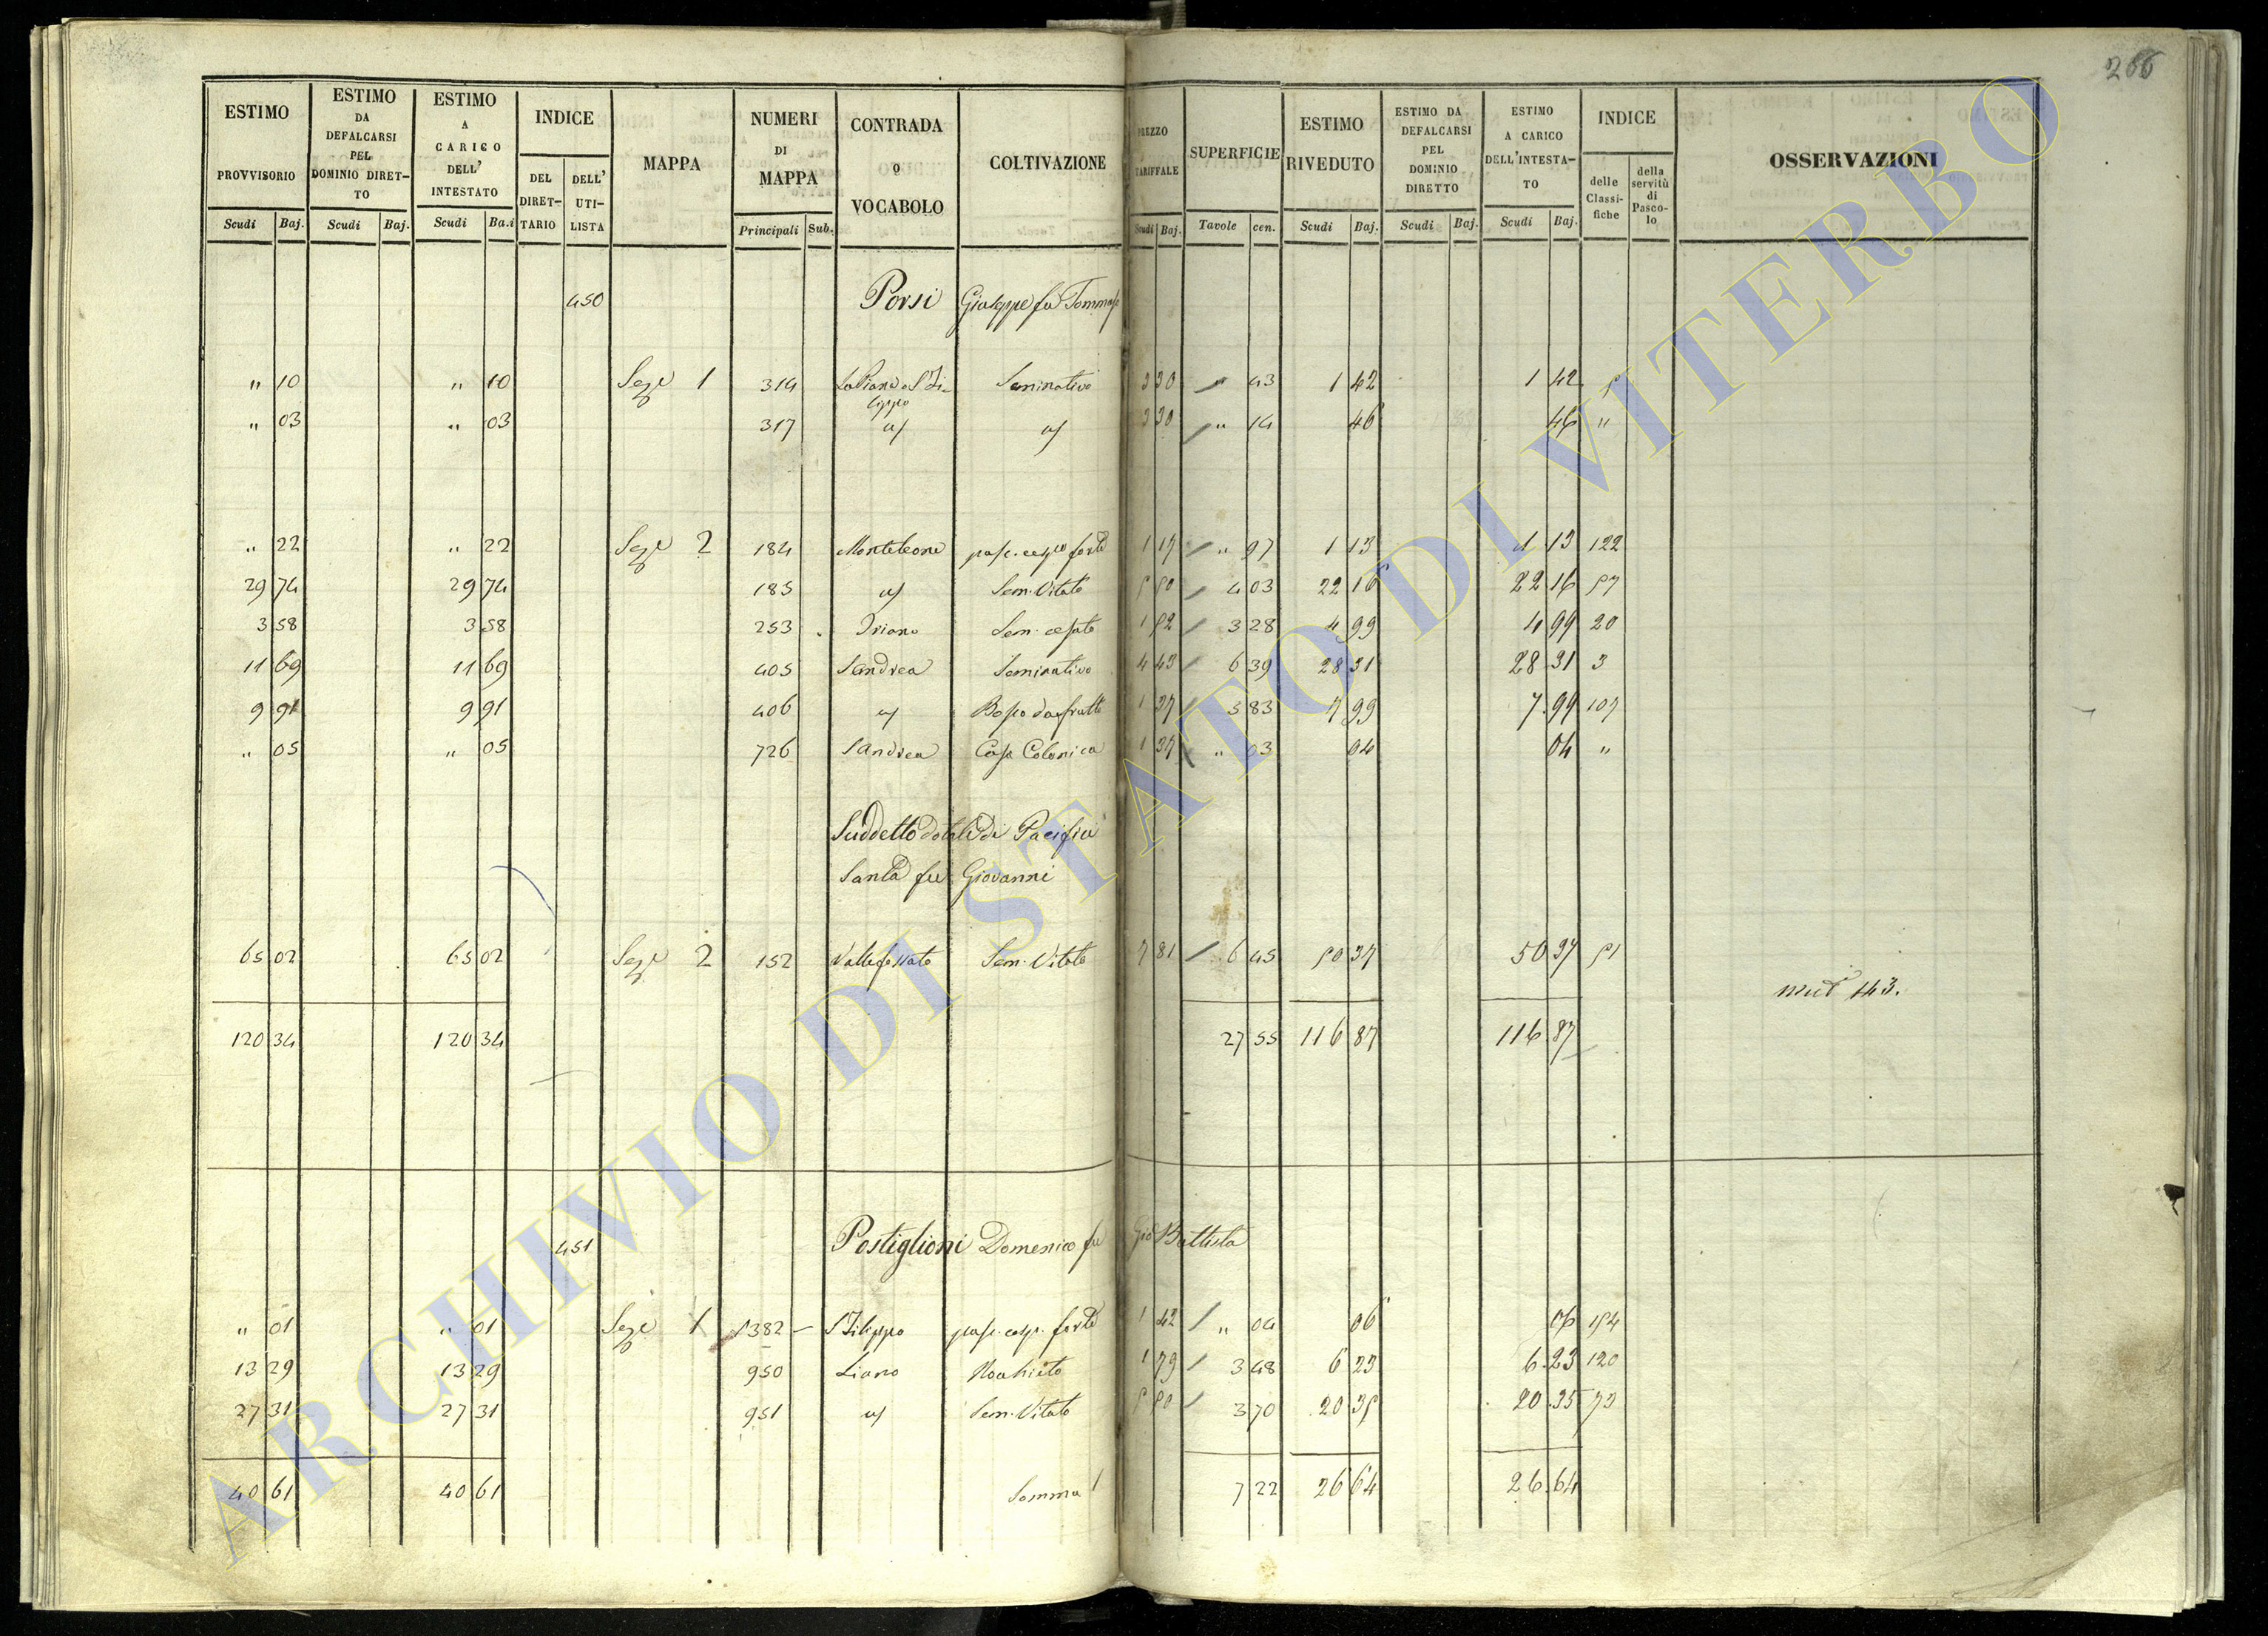 266
ESTIMO PROVVISORIO Scudi Baj.
ESTIMO DA DEFALCARSI PEL DOMINIO DIRETTO Scudi Baj.
ESTIMO A CARICO DELL' INTESTATO Scudi Ba.i
INDICE DEL DIRETTARIO DELL' UTILISTA
MAPPA
NUMERI DI MAPPA Principali Sub.
CONTRADA O VOCABOLO
COLTIVAZIONE
PREZZO TARIFFALE Scudi Baj.
SUPERFICIE Tavole cen.
ESTIMO RIVEDUTO Scudi Baj.
ESTIMO DA DEFALCARSI PEL DOMINIO DIRETTO Scudi Baj.
ESTIMO A CARICO DELL'INTESTATO Scudi Baj.
INDICE delle Classifiche della servitù di Pascolo
OSSERVAZIONI
450 Porsi Giuseppe fu Tommaso
" 10 " 10 Seze 1 314 La Piana o S Filippo Seminativo 3 30 " 43 1 42 1 42 5
" 03 " 03 317 a/ a/ 3 30 " 14 46 46 "
" 22 " 22 Seze 2 184 Monteleone pasc. cesp. forte 1 17 " 97 1 13 1 13 122
29 74 29 74 185 a/ Sem. Vitato 5 50 4 03 22 16 22 16 57
3 58 3 58 253 Iriano Sem. cesato 1 52 3 28 4 99 4 99 20
11 69 11 69 405 Sandrea Seminativo 4 43 6 39 28 31 28 31 3
9 91 9 91 406 a/ Bosco da frutto 1 37 5 83 7 99 7.99 107
" 05 " 05 726 Sandrea Casa Colonica 1 37 " 03 04 04 "
Suddetto dotale di Pacifici
Santa fu Giovanni
65 02 65 02 Seze 2 152 Vallefossato Sem. Vitato 7 81 6 45 50 37 50 37 51
mut 143.
120 34 120 34 27 55 116 87 116 87
451 Postiglioni Domenico fu Gio Battista
" 01 " 01 Seze 1 1382 S Filippo pasc. cesp. forte 1 42 " 04 06 06 154
13 29 13 29 950 Liano Nochieto 1 79 3 48 6 23 6.23 120
27 31 27 31 951 a/ Sem. Vitato 5 50 3 70 20.35 20.35 73
40 61 40 61 Somma 7 22 26 64 26.64
ARCHIVIO DI STATO DI VITERBO